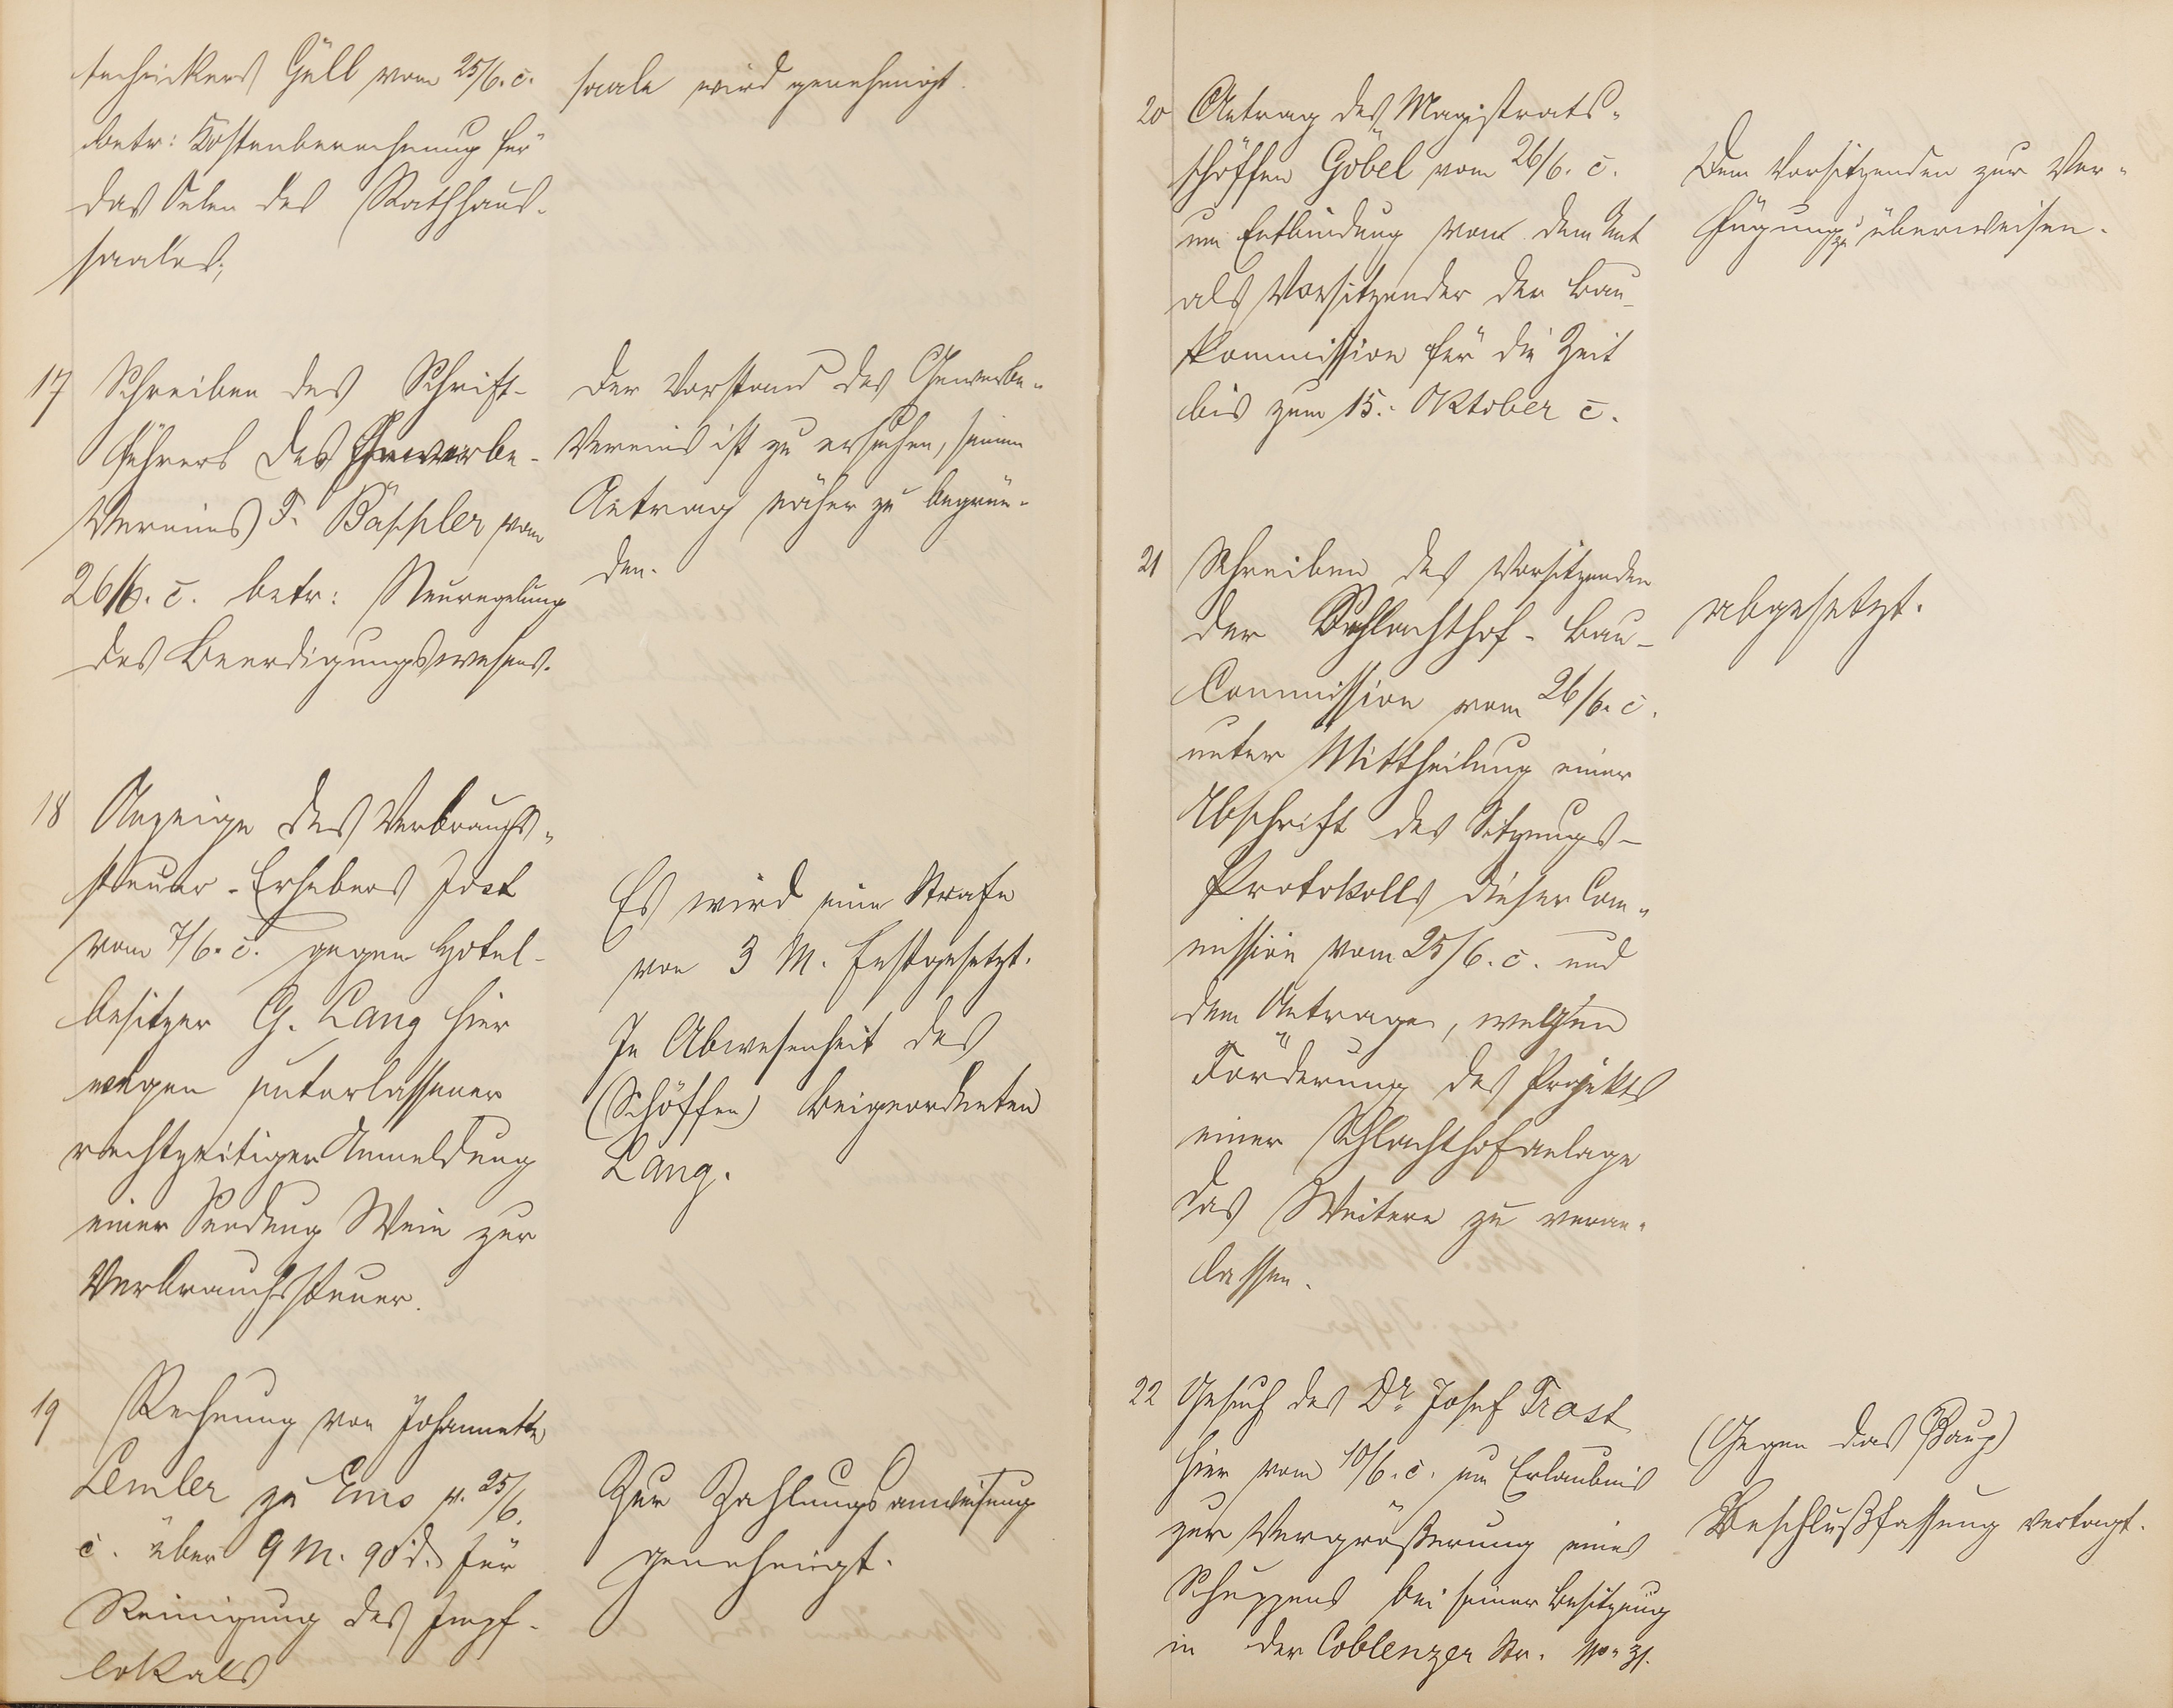 technickers Güll vom 25/6. c.
betr: Kostenberechnung für
das Oelen des Rathhaus-
saales;
saale wird genehmigt.
17 Schreiben des Schrift-
führers des Gewerbe-
Vereins F. Bäppler vom
26/6. c. betr: Neuregelung
des Beerdigungswesens.
Der Vorstand des Gewerbe-
Vereins ist zu ersuchen, seinen
Antrag näher zu begrün-
den.
18 Anzeige des Verbrauchs-
steuer-Erhebers Jost
vom 7/6. c. gegen Hotel-
besitzer G. Lang hier
wegen unterlassener
rechtzeitiger Anmeldung
einer Sendung Wein zur
Verbrauchssteuer.
Es wird eine Strafe
von 3 M. festgesetzt.
In Abwesenheit des
(Schöffen) Beigeordneten
Lang.
19 Rechnung von Johannette
Lemler zu Ems v. 25/6.
c. über 9 M. 90 d. für
Reinigung des Impf-
lokals
Zur Zahlungsanweisung
genehmigt.
20 Antrag des Magistrats-
schöffen Göbel vom 26/6. c.
um Entbindung von dem Amt
als Vorsitzender der Bau-
kommission für die Zeit
bis zum 15. Oktober c.
Dem Vorsitzenden zur Ver-
fügung zu überweisen.
21 Schreiben des Vorsitzenden
der Schlachthof-Bau-
Commission vom 26/6. c.
unter Mittheilung einer
Abschrift des Sitzungs-
Protokolls dieser Com-
mission vom 25/6. c. und
dem Antrage, wegen
Förderung des Projekts
einer Schlachthofanlage
das Weitere zu veran-
lassen.
abgesetzt.
22 Gesuch des Dr. Josef Trost
hier vom 10/6. c. um Erlaubnis
zur Vergrößerung eines
Schuppens bei seiner Besitzung
in der Coblenzer Str. No. 31.
(Gegen das Baug)
Beschlußfassung vertagt.